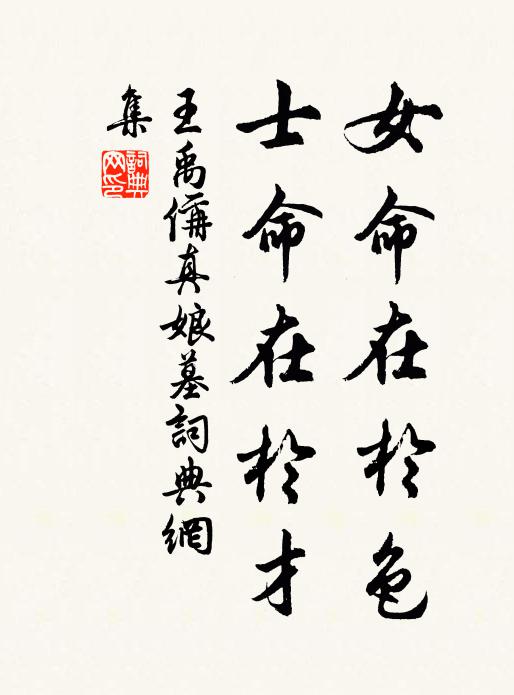 女命在於色
士命在於才
王禹偁真娘墓詞典網
集
詞典
网印